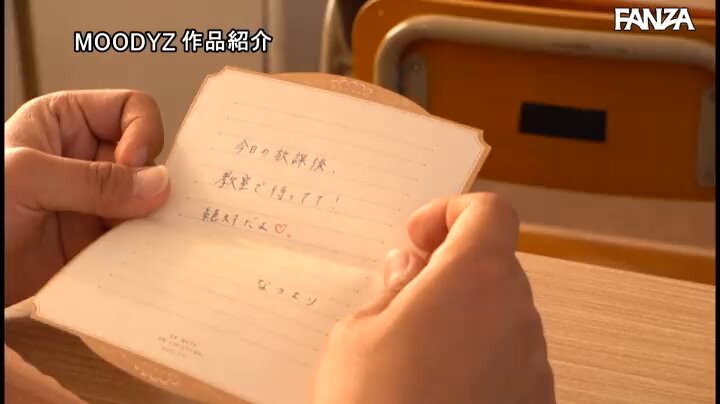 MOODYZ 作品紹介
FANZA
今日の放課後、
教室で待ってて！
絶対だよ♡。
なつより